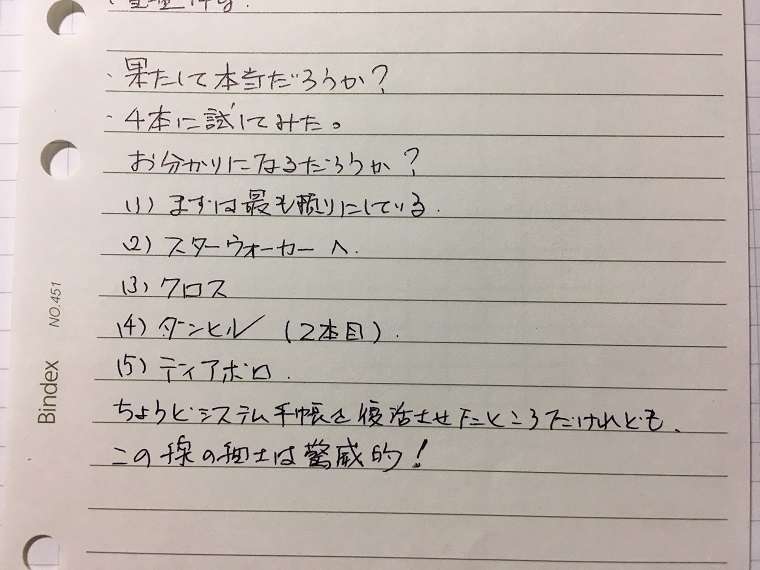 ・果たして本当だろうか？
・4本に試してみた。
お分かりになるだろうか？
(1) まずは最も頼りにしている.
(2) スターウォーカーへ.
(3) クロス
(4) ダンヒル (2本目).
(5) ディアボロ.
ちょうどシステム手帳を復活させたところだけれども、
この線の細士は驚威的！
Bindex NO.451